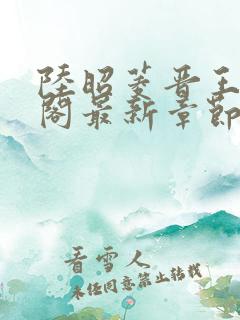 陸昭菱晋王
閣最新章節
看雪人
未经同意禁止转载